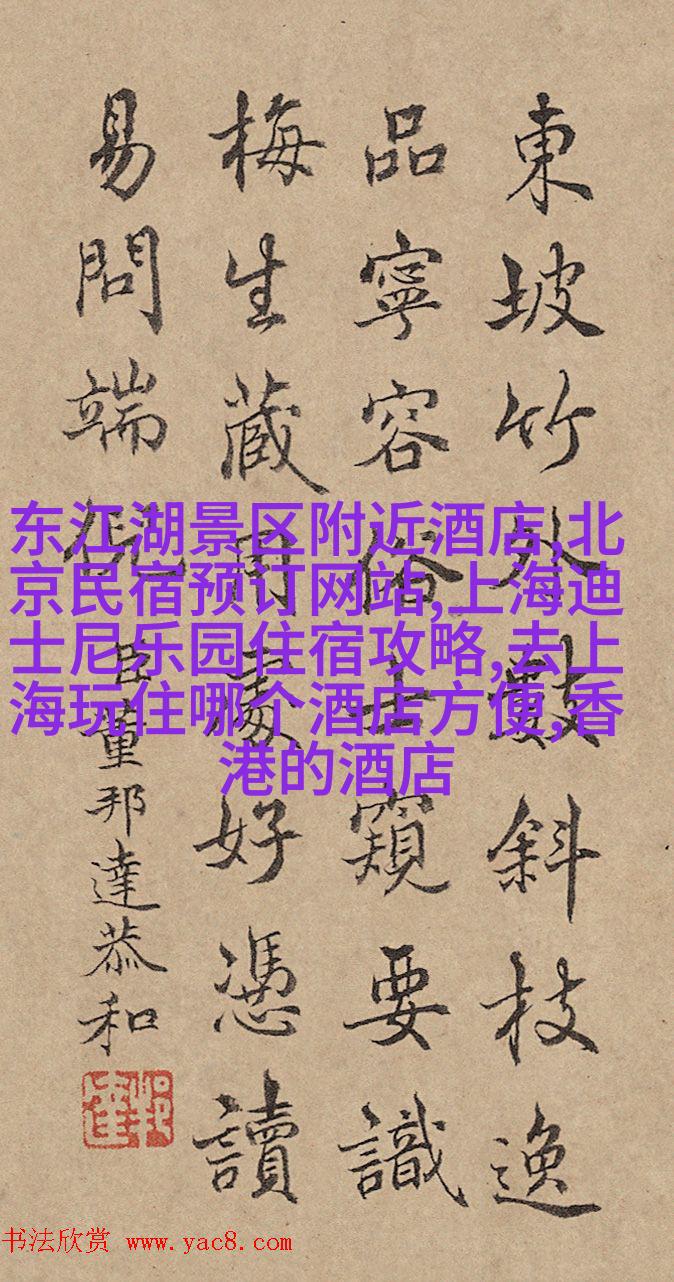 東坡竹外數斜枝逸
品寧容俗士窺要識
梅生藏用處好憑讀
易問端倪
臣董邦達恭和
东江湖景区附近酒店,北
京民宿预订网站,上海迪
士尼乐园住宿攻略,去上
海玩住哪个酒店方便,香
港的酒店
书法欣赏 www.yac8.com